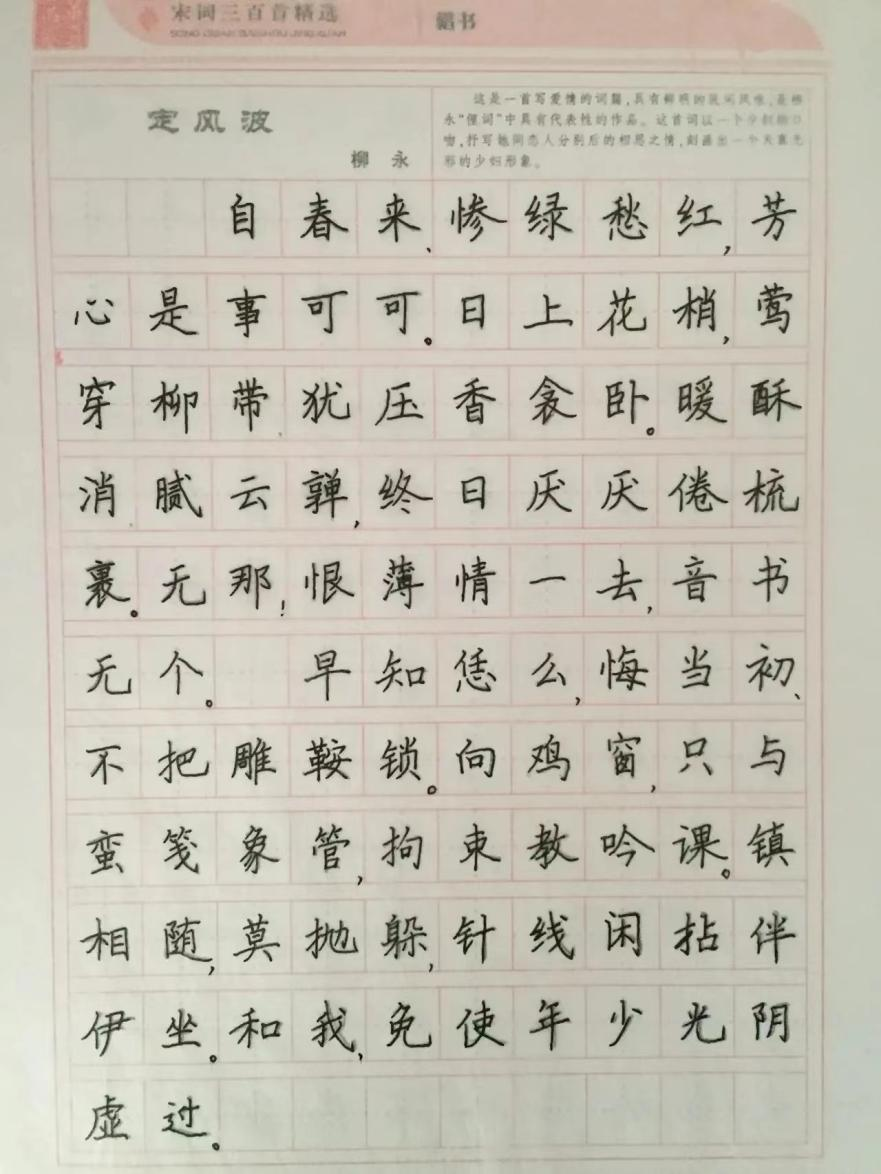 宋词三百首精选
楷书
定风波
柳 永
这是一首写爱情的词篇,具有鲜明的民间风味,是柳
永“俚词”中具有代表性的作品。这首词以一个少妇的口
吻,抒写她同恋人分别后的相思之情,刻画出一个天真无
邪的少妇形象。
自春来、惨绿愁红,芳
心是事可可。日上花梢,莺
穿柳带犹压香衾卧。暖酥
消腻云亸,终日厌厌倦梳
裹。无那!恨薄情一去,音书
无个。 早知恁么,悔当初、
不把雕鞍锁。向鸡窗,只与
蛮笺象管,拘束教吟课。镇
相随,莫抛躲,针线闲拈伴
伊坐。和我,免使年少光阴
虚过。